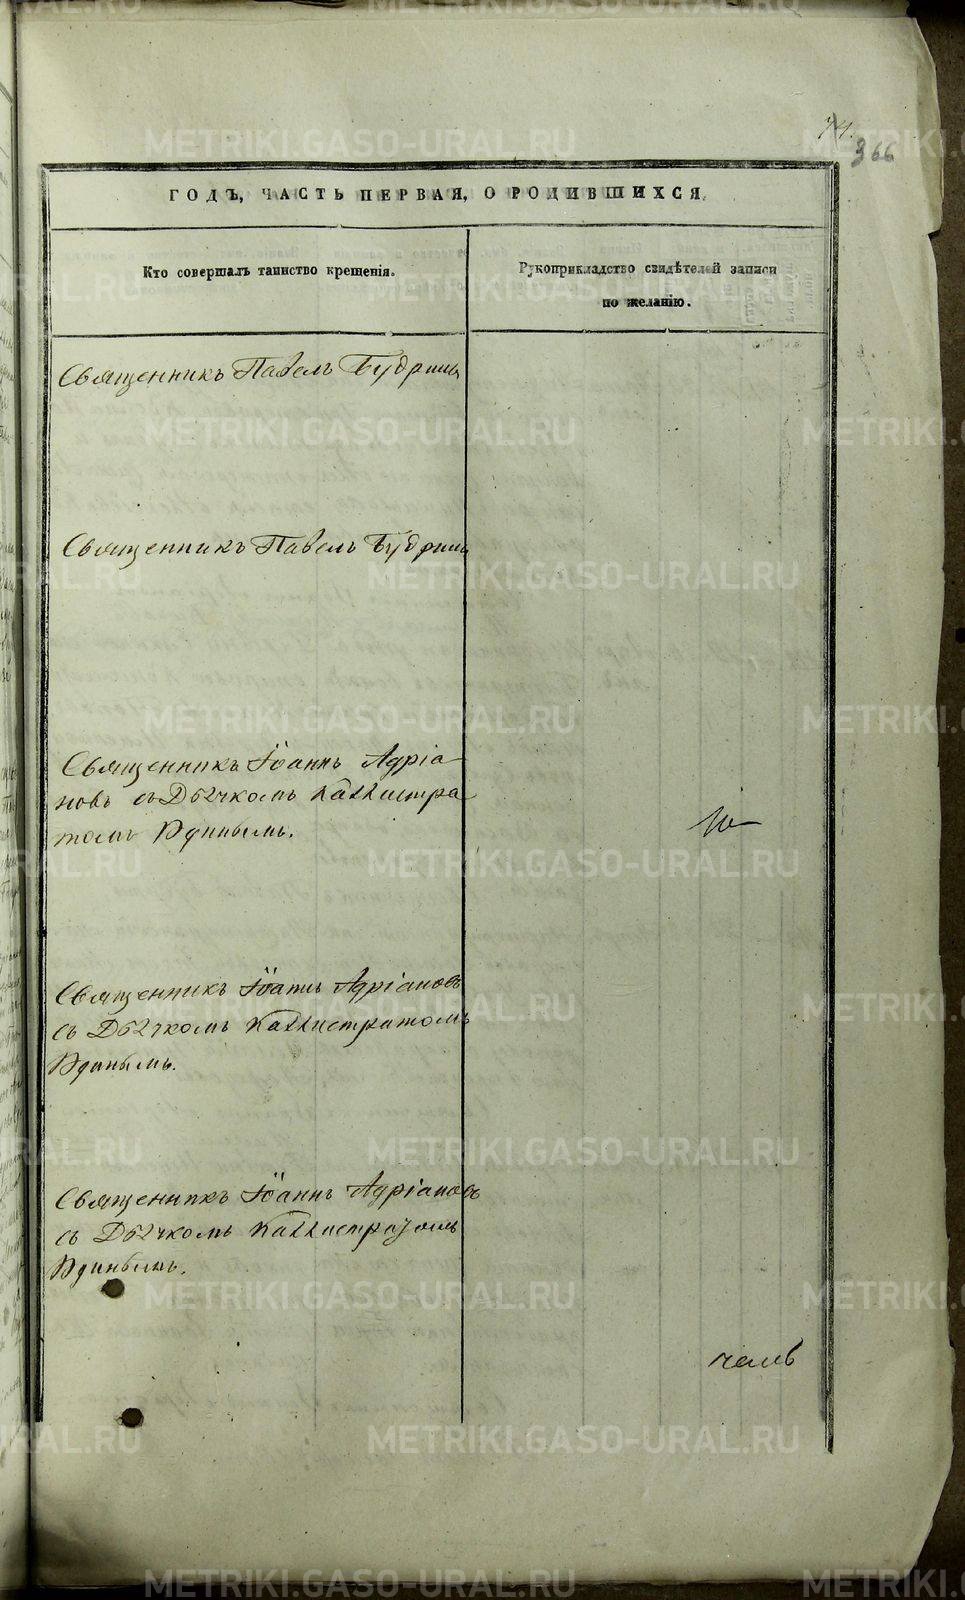 74.
366
ГОДЪ, ЧАСТЬ ПЕРВАЯ, О РОДИВШИХСЯ.
Кто совершалъ таинство крещенія.
Рукоприкладство свидѣтелей записи
по желанію.
Священникъ Павелъ Будринъ
Священникъ Павелъ Будринъ
Священникъ Іоаннъ Адріа
новъ съ Дьячкомъ Каллистра
томъ Юдинымъ.
Священникъ Іоаннъ Адріановъ
съ Дьячкомъ Каллистратомъ
Юдинымъ.
Священникъ Іоаннъ Адріановъ
съ Дьячкомъ Каллистратомъ
Юдинымъ.
METRIKI.GASO-URAL.RU